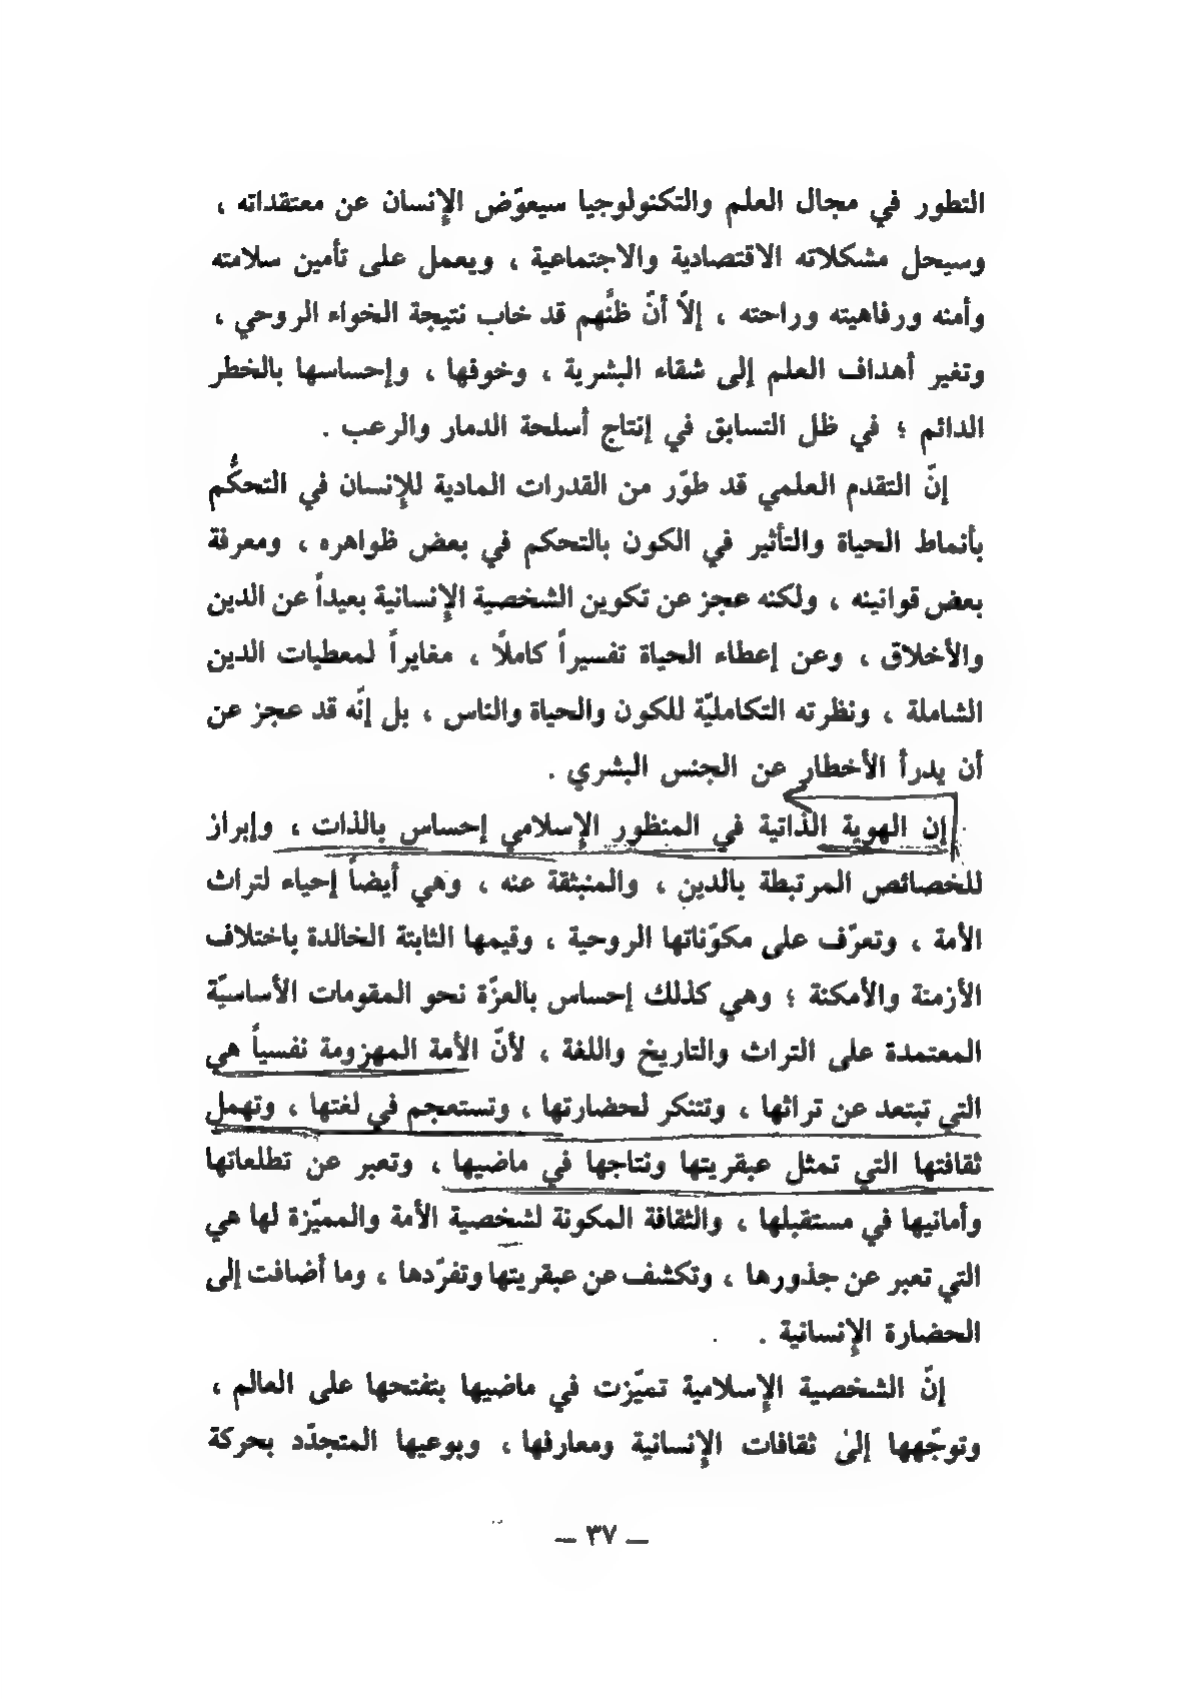 التطور في مجال العلم والتكنولوجيا سيعوّض الإنسان عن معتقداته ،
وسيحل مشكلاته الاقتصادية والاجتماعية ، ويعمل على تأمين سلامته
وأمنه ورفاهيته وراحته ، إلاّ أنّ ظنَّهم قد خاب نتيجة الخواء الروحي ،
وتغير أهداف العلم إلى شقاء البشرية ، وخوفها ، وإحساسها بالخطر
الدائم ؛ في ظل التسابق في إنتاج أسلحة الدمار والرعب .
إنّ التقدم العلمي قد طوّر من القدرات المادية للإنسان في التحكُّم
بأنماط الحياة والتأثير في الكون بالتحكم في بعض ظواهره ، ومعرفة
بعض قوانينه ، ولكنه عجز عن تكوين الشخصية الإنسانية بعيداً عن الدين
والأخلاق ، وعن إعطاء الحياة تفسيراً كاملاً ، مغايراً لمعطيات الدين
الشاملة ، ونظرته التكامليّة للكون والحياة والناس ، بل إنّه قد عجز عن
أن يدرأ الأخطار عن الجنس البشري .
إن الهوية الذاتية في المنظور الإسلامي إحساس بالذات ، وإبراز
للخصائص المرتبطة بالدين ، والمنبثقة عنه ، وهي أيضاً إحياء لتراث
الأمة ، وتعرّف على مكوّناتها الروحية ، وقيمها الثابتة الخالدة باختلاف
الأزمنة والأمكنة ؛ وهي كذلك إحساس بالعزّة نحو المقومات الأساسيّة
المعتمدة على التراث والتاريخ واللغة ، لأنّ الأمة المهزومة نفسياً هي
التي تبتعد عن تراثها ، وتتنكر لحضارتها ، وتستعجم في لغتها ، وتهمل
ثقافتها التي تمثل عبقريتها ونتاجها في ماضيها ، وتعبر عن تطلعاتها
وأمانيها في مستقبلها ، والثقافة المكونة لشخصية الأمة والمميّزة لها هي
التي تعبر عن جذورها ، وتكشف عن عبقريتها وتفرّدها ، وما أضافت إلى
الحضارة الإنسانية .
إنّ الشخصية الإسلامية تميّزت في ماضيها بتفتحها على العالم ،
وتوجّهها إلىٰ ثقافات الإنسانية ومعارفها ، وبوعيها المتجدّد بحركة
— ٣٧ —